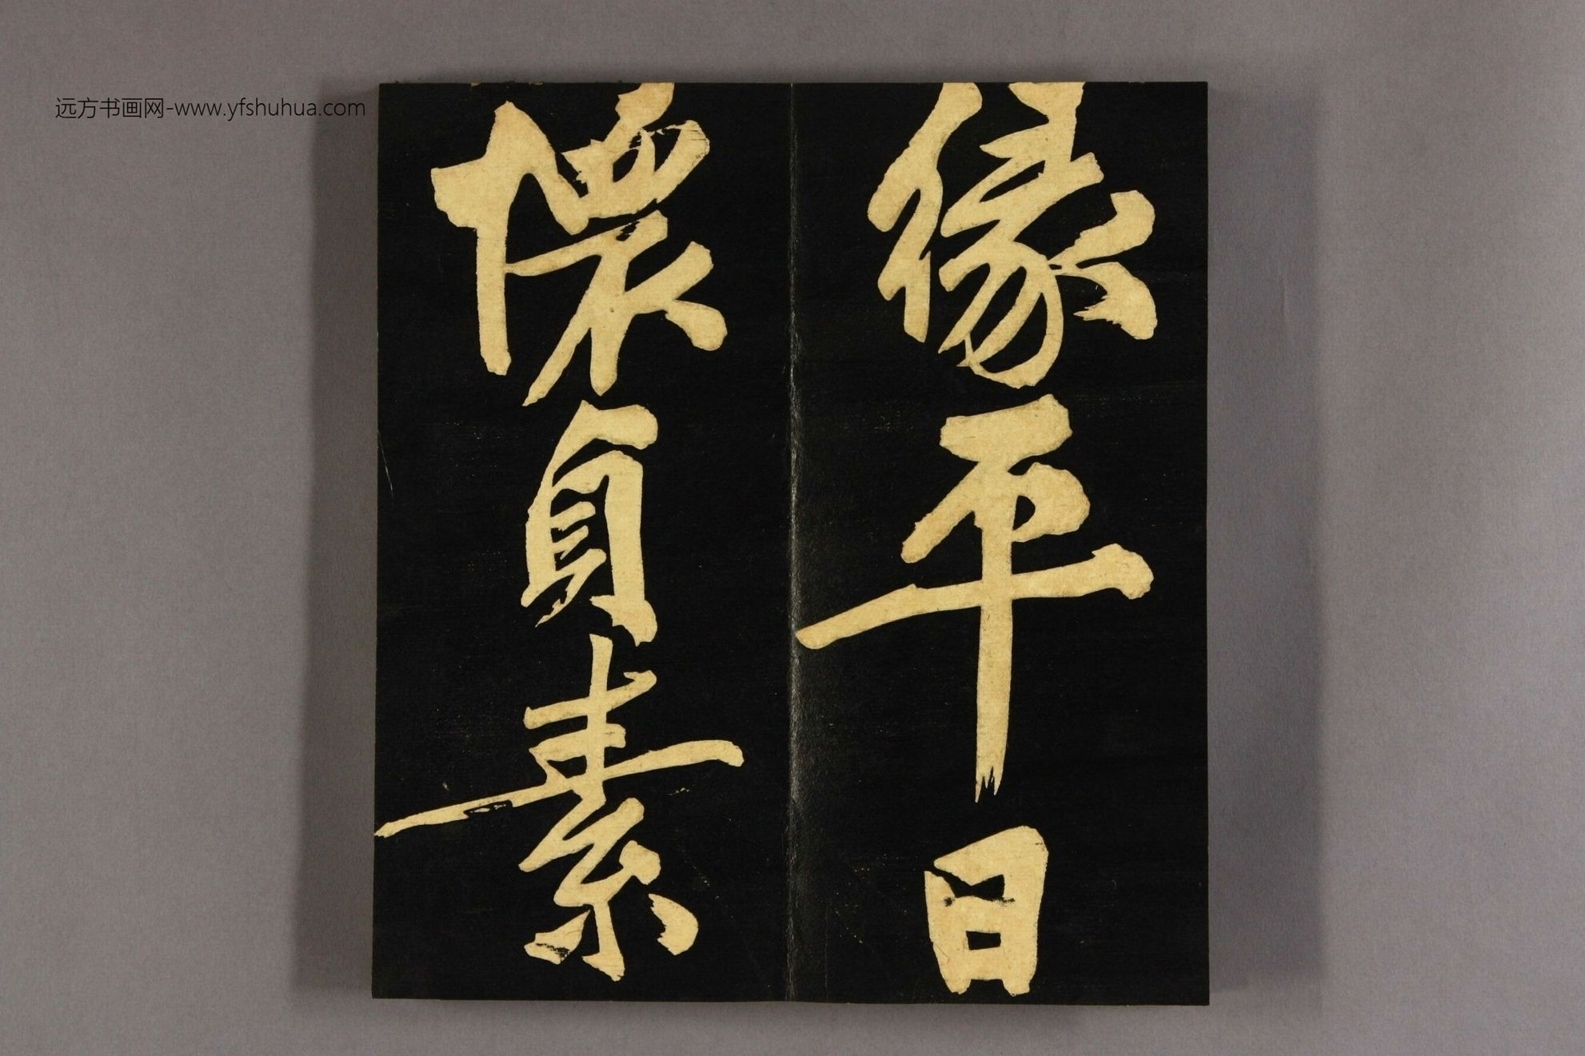 远方书画网-www.yfshuhua.com
緣平日
懷貞素